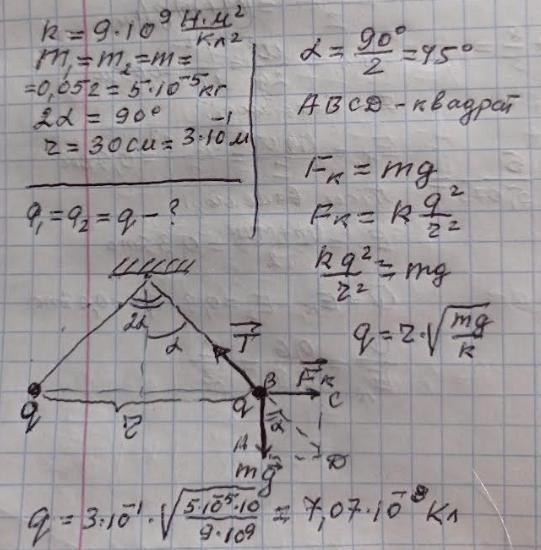 k = 9·10⁹ Н·м²/Кл²
m₁ = m₂ = m =
= 0,05г = 5·10⁻⁵ кг
2α = 90°
r = 30 см = 3·10⁻¹ м
q₁ = q₂ = q - ?
α = 90°/2 = 45°
ABCD - квадрат
Fк = mg
Fк = k q²/r²
kq²/r² = mg
q = r·√(mg/k)
2α
α
T
q
r
q
B
Fк
C
α
A
mg
D
q = 3·10⁻¹·√(5·10⁻⁵·10/9·10⁹) = 7,07·10⁻⁸ Кл